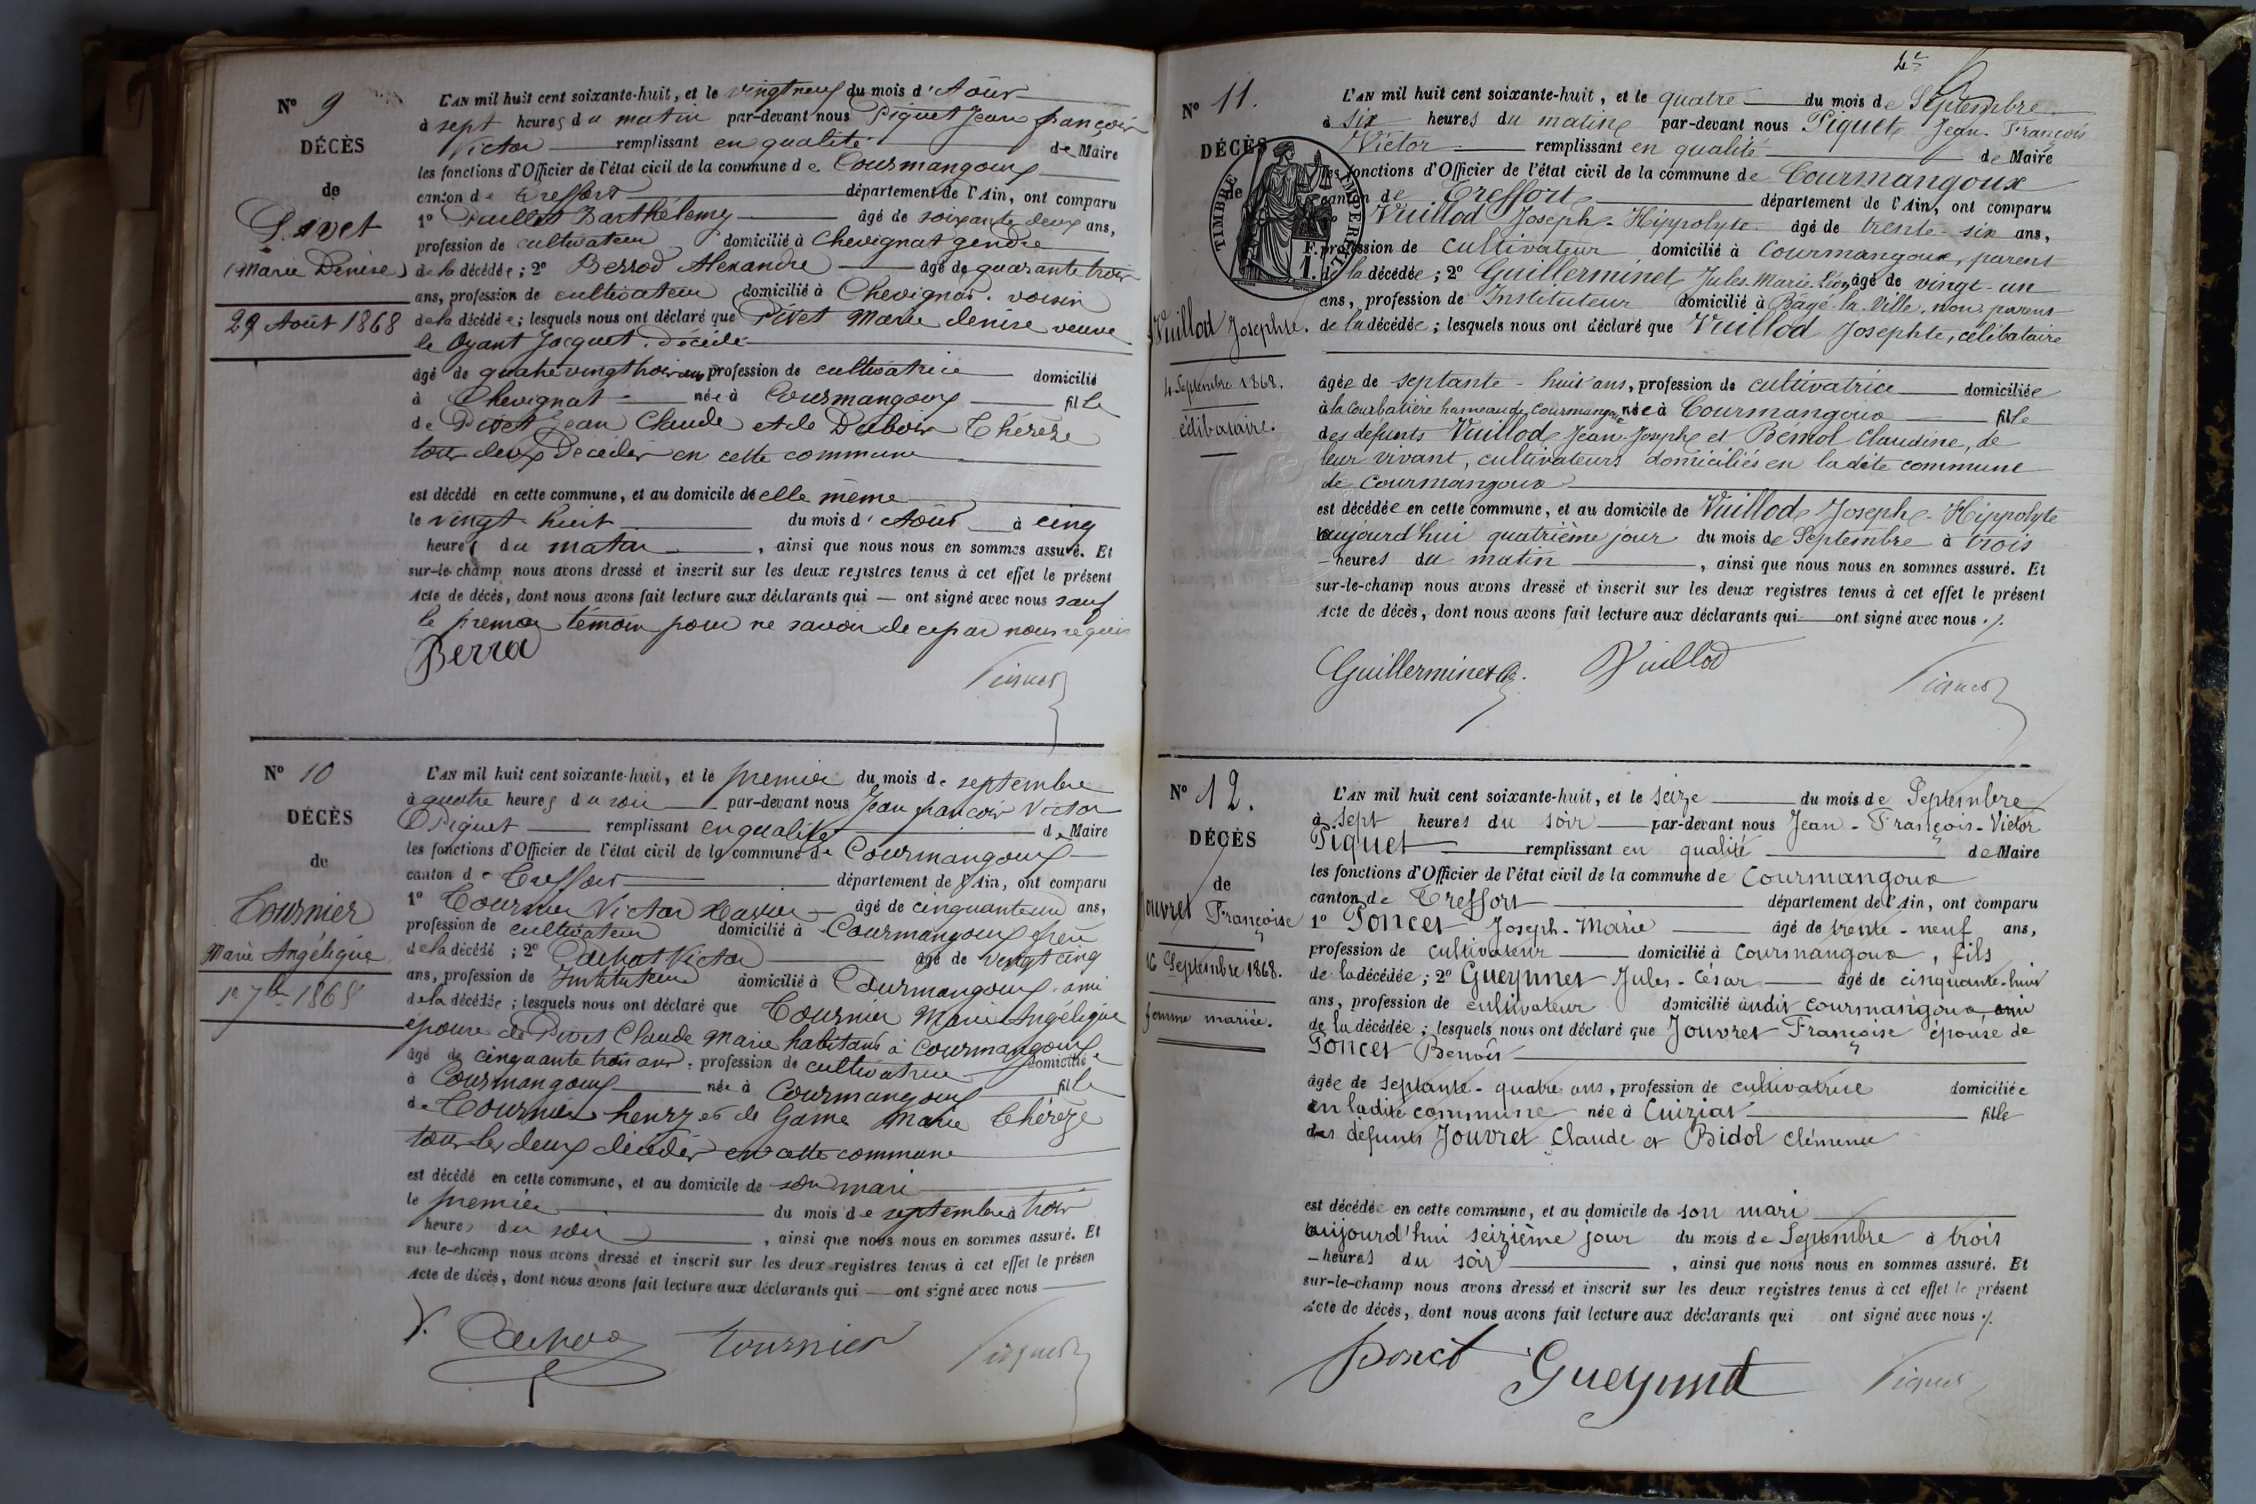 N° 9
DÉCÈS
de
Pivet
(Marie Denise)
29 Août 1868
L'AN mil huit cent soixante-huit, et le vingt neuf du mois d'Août
à sept heures du matin par-devant nous Piquet Jean françois
Victor remplissant en qualité de Maire
les fonctions d'Officier de l'état civil de la commune de Courmangoux
canton de Treffort département de l'Ain, ont comparu
1° Paillet Barthélemy âgé de soixante deux ans,
profession de cultivateur domicilié à Chevignat gendre
de la décédée ; 2° Berrod Alexandre âgé de quarante trois
ans, profession de cultivateur domicilié à Chevignat. voisin
de la décédée ; lesquels nous ont déclaré que Pivet Marie denise veuve
de Oyant Jacquet. Décédé
âgé de quatre vingt trois ans profession de cultivatrice domicilié
à Chevignat née à Courmangoux fille
de Pivet Jean Claude et de Dubois Thérèze
tous deux Décédés en cette commune
est décédé en cette commune, et au domicile de elle même
le vingt huit du mois d'Août à cinq
heures du matin , ainsi que nous nous en sommes assuré. Et
sur-le-champ nous avons dressé et inscrit sur les deux registres tenus à cet effet le présent
Acte de décès, dont nous avons fait lecture aux déclarants qui — ont signé avec nous sauf
le premier témoin pour ne savoir de ce par nous requis
Berrod
Piquet
N° 10
DÉCÈS
de
Tournier
Marie Angélique
1er 7bre 1868
L'AN mil huit cent soixante-huit, et le premier du mois de septembre
à quatre heures du soir par-devant nous Jean françois Victor
Piquet remplissant en qualité de Maire
les fonctions d'Officier de l'état civil de la commune de Courmangoux
canton de Treffort département de l'Ain, ont comparu
1° Tournier Victor Xavier âgé de cinquante un ans,
profession de cultivateur domicilié à Courmangoux frère
de la décédé ; 2° Cachat Victor âgé de vingt cinq
ans, profession de Instituteur domicilié à Courmangoux. ami
de la décédée ; lesquels nous ont déclaré que Tournier Marie Angélique
épouse de Pivet Claude Marie habitant à Courmangoux
âgé de cinquante trois ans, profession de cultivatrice domicilié
à Courmangoux née à Courmangoux fille
de Tournier henry et de Game Marie Thérèze
tous les deux décédés en cette commune
est décédé en cette commune, et au domicile de son mari
le premier du mois de septembre à trois
heures du soir , ainsi que nous nous en sommes assuré. Et
sur-le-champ nous avons dressé et inscrit sur les deux registres tenus à cet effet le présen
Acte de décès, dont nous avons fait lecture aux déclarants qui — ont signé avec nous
V. Cachat Tournier Piquet
N° 11.
DÉCÈS
de
TIMBRE IMPERIAL
Vuillod Josephte.
4 Septembre 1868.
célibataire.
L'AN mil huit cent soixante-huit, et le quatre du mois de Septembre
à six heures du matin par-devant nous Piquet Jean-François
Victor remplissant en qualité de Maire
les fonctions d'Officier de l'état civil de la commune de Courmangoux
canton de Treffort département de l'Ain, ont comparu
Vuillod Joseph-Hippolyte âgé de trente-six ans,
profession de cultivateur domicilié à Courmangoux, parent
de la décédée ; 2° Guillerminet Jules-Marie-Léon âgé de vingt-un
ans, profession de Instituteur domicilié à Bâgé-la-Ville, non parent
de la décédée ; lesquels nous ont déclaré que Vuillod Josephte, célibataire
âgée de septante-huit ans, profession de cultivatrice domiciliée
à la Courbatière hameau de Courmangoux née à Courmangoux fille
des défunts Vuillod Jean-Joseph et Bémol Claudine, de
leur vivant, cultivateurs domiciliés en ladite commune
de Courmangoux
est décédée en cette commune, et au domicile de Vuillod Joseph-Hippolyte
aujourd'hui quatrième jour du mois de Septembre à trois
heures du matin , ainsi que nous nous en sommes assuré. Et
sur-le-champ nous avons dressé et inscrit sur les deux registres tenus à cet effet le présent
Acte de décès, dont nous avons fait lecture aux déclarants qui ont signé avec nous ./.
Guillerminet Vuillod Piquet
N° 12.
DÉCÈS
de
Jouvret Françoise
16 Septembre 1868.
femme mariée.
L'AN mil huit cent soixante-huit, et le seize du mois de Septembre
à sept heures du soir par-devant nous Jean-François-Victor
Piquet remplissant en qualité de Maire
les fonctions d'Officier de l'état civil de la commune de Courmangoux
canton de Treffort département de l'Ain, ont comparu
1° Poncet Joseph-Marie âgé de trente-neuf ans,
profession de cultivateur domicilié à Courmangoux, fils
de la décédée ; 2° Gueynnet Jules-César âgé de cinquante-huit
ans, profession de cultivateur domicilié audit Courmangoux, ami
de la décédée ; lesquels nous ont déclaré que Jouvret Françoise épouse de
Poncet Benoît
âgée de septante-quatre ans, profession de cultivatrice domiciliée
en ladite commune née à Cuiziat fille
des défunts Jouvret Claude et Bidol Clémence
est décédée en cette commune, et au domicile de son mari
aujourd'hui seizième jour du mois de Septembre à trois
heures du soir , ainsi que nous nous en sommes assuré. Et
sur-le-champ nous avons dressé et inscrit sur les deux registres tenus à cet effet le présent
Acte de décès, dont nous avons fait lecture aux déclarants qui ont signé avec nous ./.
Poncet Gueynnet Piquet